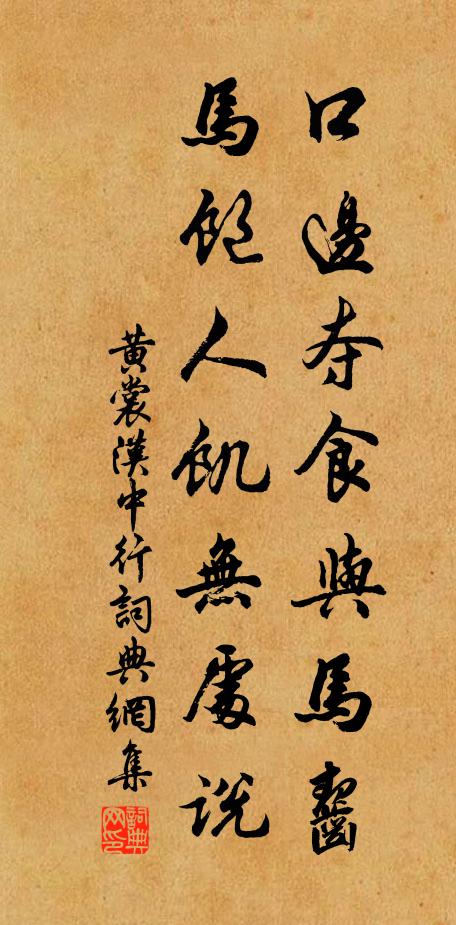 口邊夺食與馬齧
馬飽人飢無處説
黄裳漢中行詞典網集
詞典网印